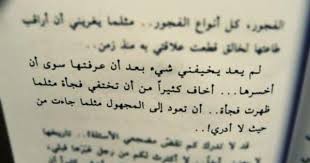 الفجور، كل أنواع الفجور.. مثلما يغريني أن أراقب
طاعتها لخالق قطعت علاقتي به منذ زمن..
لم يعد يخيفني شيء بعد أن عرفتها سوى أن
أخسرها... أخاف كثيراً من أن تختفي فجأة مثلما
ظهرت فجأة.. أن تعود إلى المجهول مثلما جاءت من
حيث لا أدري!..
قد لا تدرك كم تقض مضجعي الأسئلة!.. تاريخها